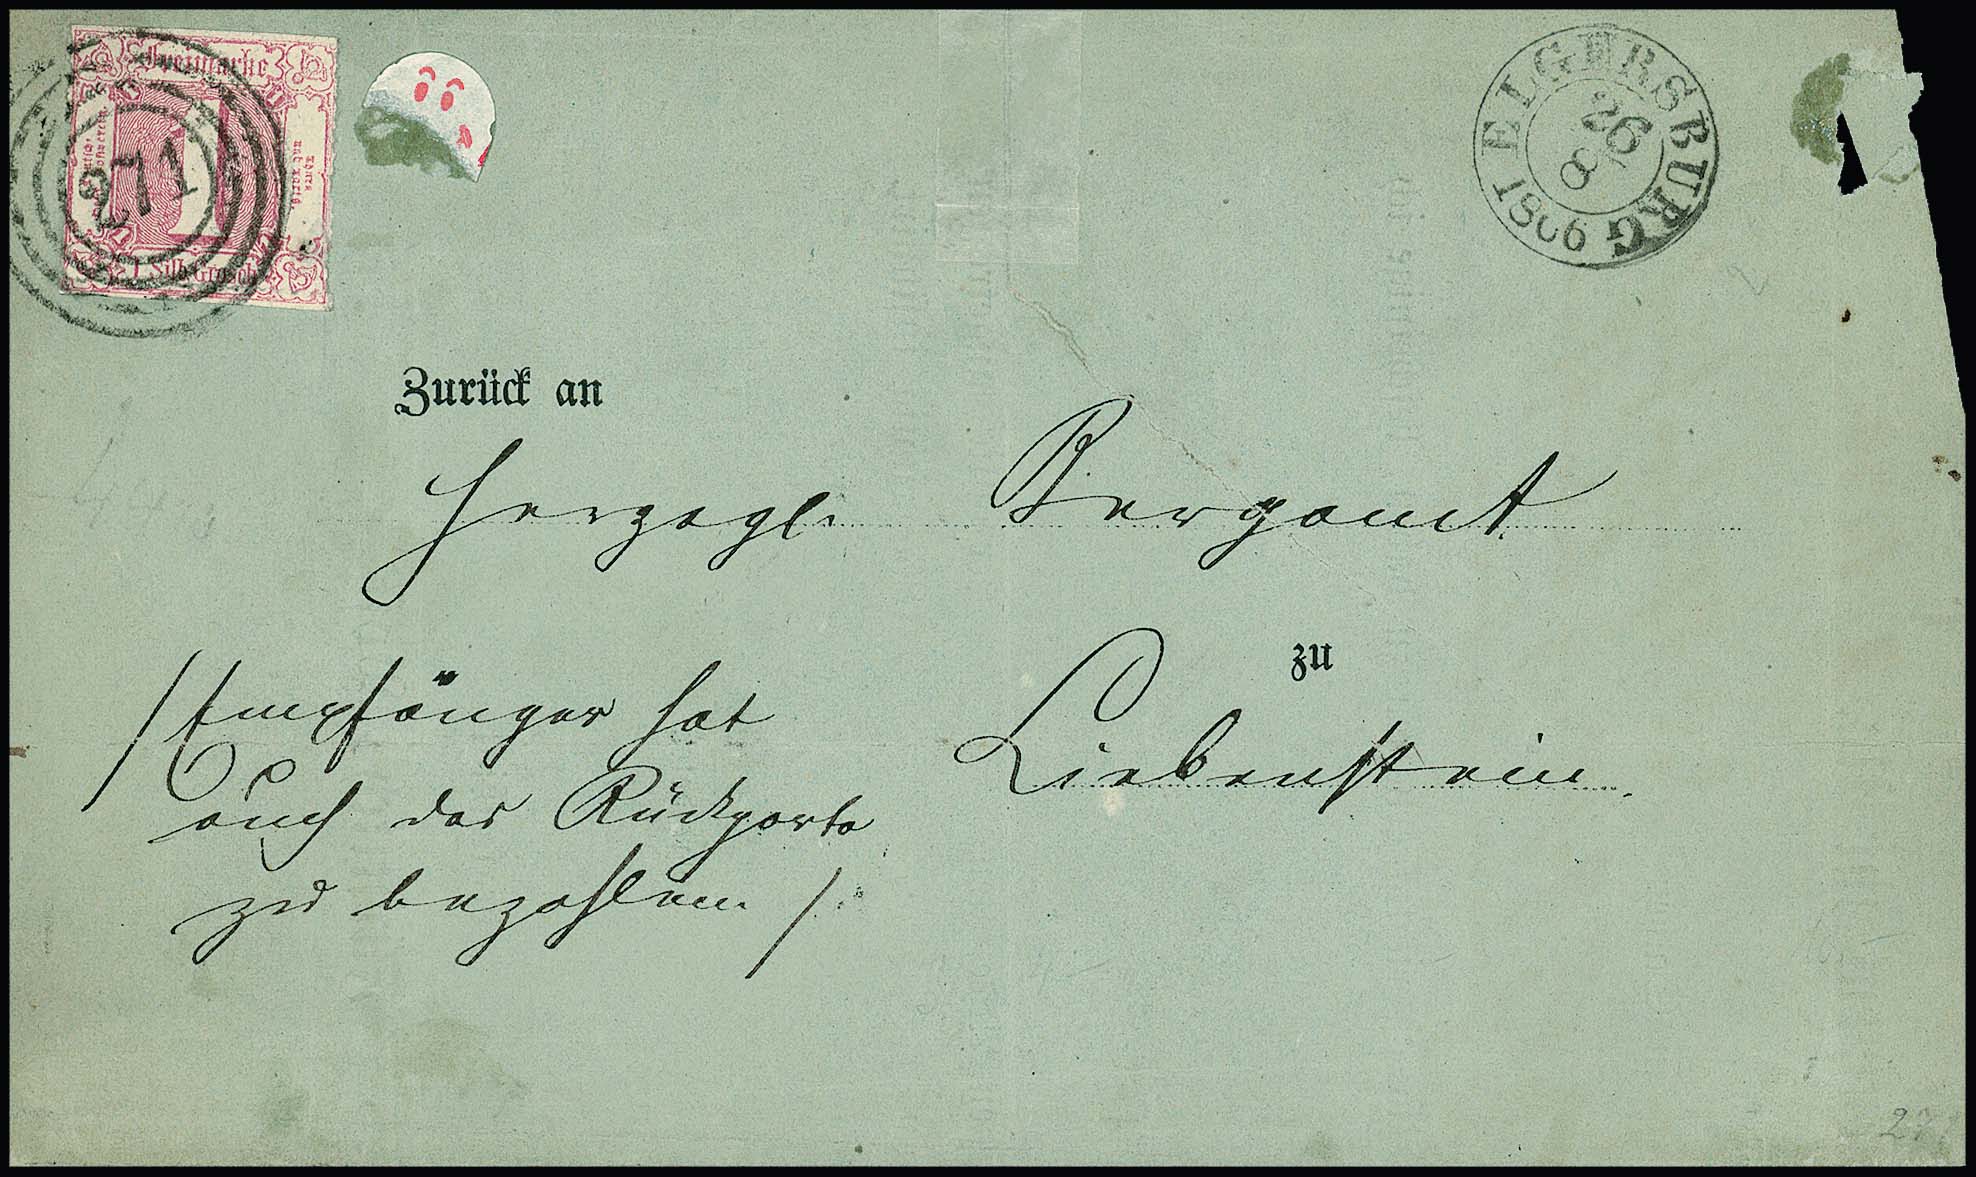 Freimarke
271
1 Silb. Grosch.
ELGERSBURG
26
8
1866
Zurück an
Herzogl. Bergamt
zu
Liebenstein.
/Empfänger hat
auch das Rückporto
zu bezahlen./